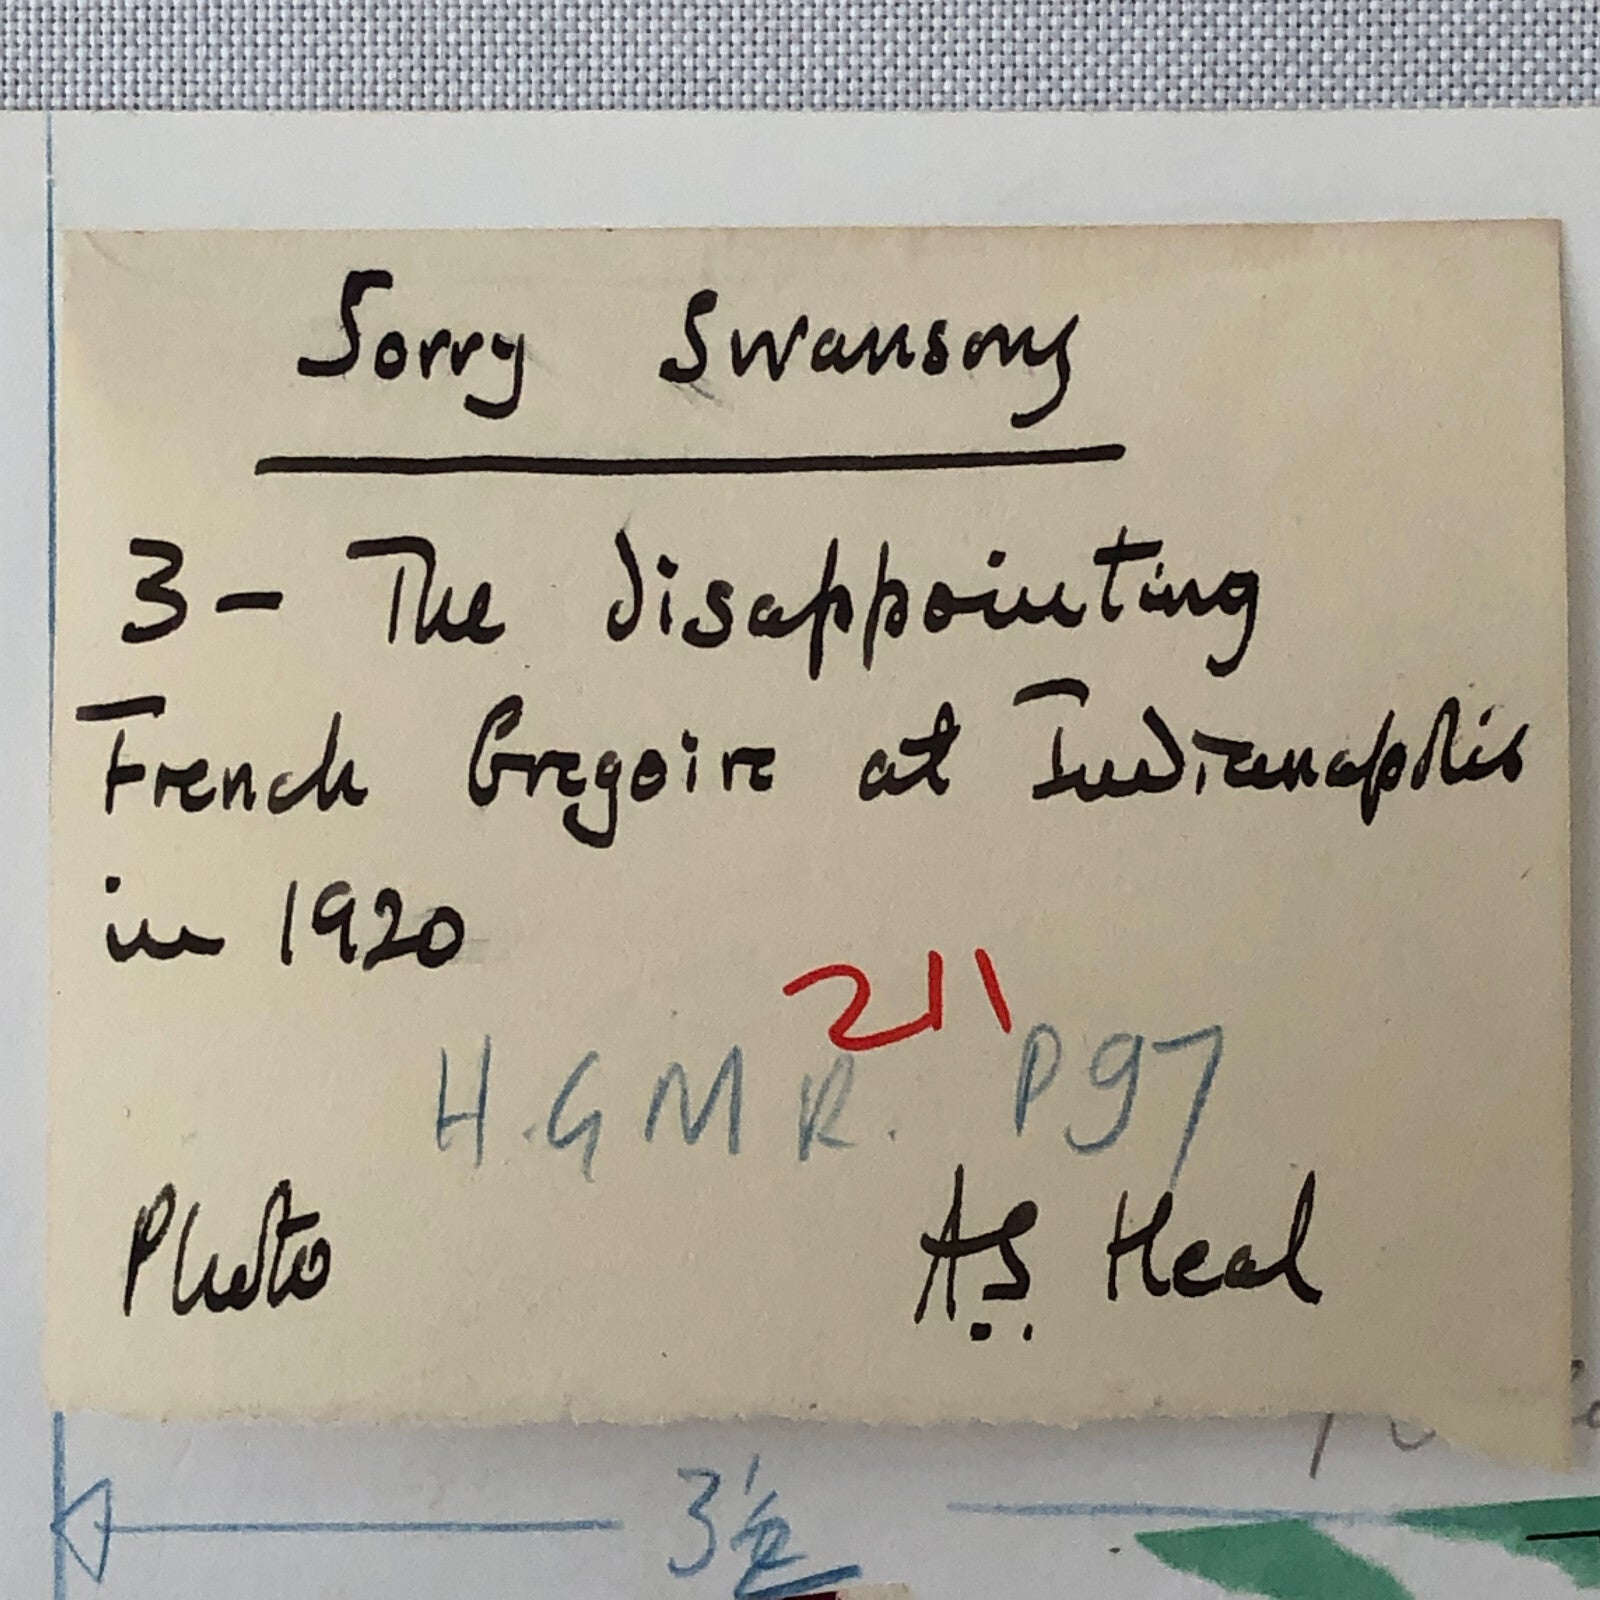 Sorry Swansong
3 - The disappointing
French Gregoire at Indianapolis
in 1920
211
H.G M R. P97
Photo A.S. Heal
3 1/2